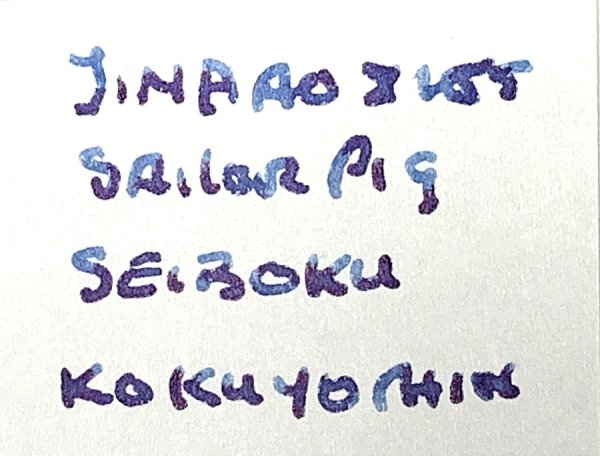 JINHAO
SAILOR PIG
SEIBOKU
KOKUYO THIN